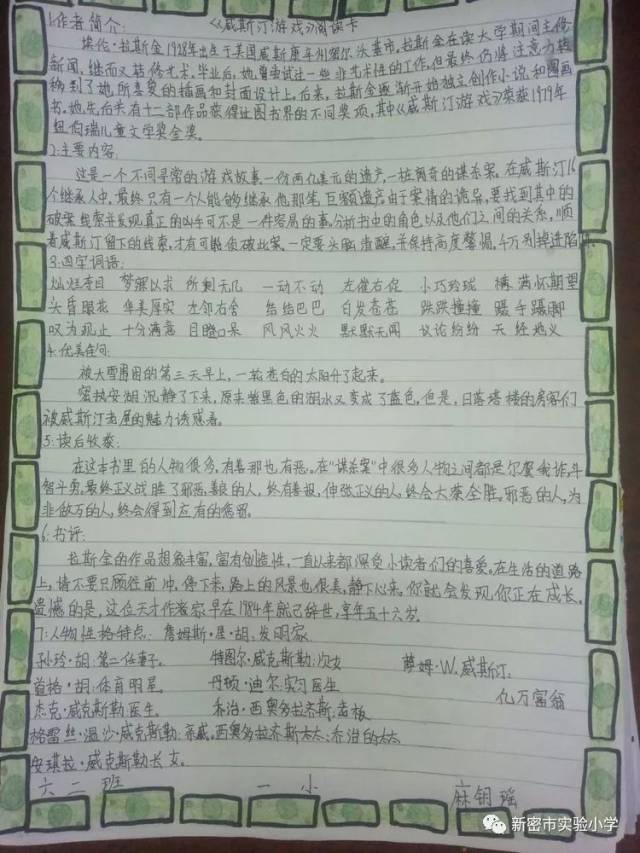 1.作者简介: 《威斯汀游戏》阅读卡
埃伦·拉斯金1928年出生于美国威斯康辛州密尔沃基市,拉斯金在读大学期间主修
新闻,继而又转修艺术,毕业后,她曾尝试过一些非艺术性的工作,但最终仍将注意力转
移到了她所喜爱的插画和封面设计上,后来,拉斯金逐渐开始独立创作小说和图画
书。她先后共有十二部作品获得让图书界的不同奖项,其中《威斯汀游戏》荣获1979年
纽伯瑞儿童文学奖金奖。
2.主要内容:
这是一个不同寻常的游戏故事,一份两亿美元的遗产,一桩离奇的谋杀案。在威斯汀16
个继承人中,最终只有一个人能够继承他那笔巨额遗产,由于案情的诡异,要找到其中的
破案线索并发现真正的凶手可不是一件容易的事。分析书中的角色以及他们之间的关系,顺
着威斯汀留下的线索,才有可能侦破此案。一定要头脑清醒,并保持高度警惕。千万别掉进陷阱
3.四字词语:
灿烂夺目 梦寐以求 所剩无几 一动不动 左催右促 小巧玲珑 满怀期望
头昏眼花 华美厚实 左邻右舍 结结巴巴 白发苍苍 跌跌撞撞 蹑手蹑脚
叹为观止 十分满意 目瞪口呆 风风火火 默默无闻 议论纷纷 天经地义
4.优美佳句:
被大雪围困的第三天早上,一轮苍白的太阳升了起来。
密执安湖沉静了下来,原来紫黑色的湖水又变成了蓝色,但是,日落塔楼的房客们
被威斯汀老屋的魅力诱惑着。
5:读后收获:
在这本书里的人物很多,有善那也有恶。在“谋杀案”中很多人物之间都是尔虞我诈,斗
智斗勇,最终正义战胜了邪恶,善良的人,终有善报,伸张正义的人,终会大获全胜。邪恶的人,为
非做万的人,终会得到应有的惩罚。
6:书评:
拉斯金的作品想象丰富,富有创造性,一直以来都深受小读者们的喜爱。在生活的道路
上,请不要只顾往前冲,停下来,路上的风景也很美,静下心来。你就会发现,你正在成长。
遗憾的是,这位天才作家早在1984年就已辞世,享年五十六岁。
7:人物性格特点: 詹姆斯·居·胡,发明家
孙玲·胡:第二任妻子。 特图尔·威克斯勒:次女 萨姆·W.威斯汀:
道格·胡:体育明星 丹顿·迪尔:实习医生 亿万富翁
杰克·威克斯勒医生。 乔治·西奥多拉齐斯:老板
格雷丝·温沙·威克斯勒:亲戚。西奥多拉齐斯太太:乔治的太太
安琪拉·威克斯勒:长女。
六二班 一小 麻钥瑶
新密市实验小学